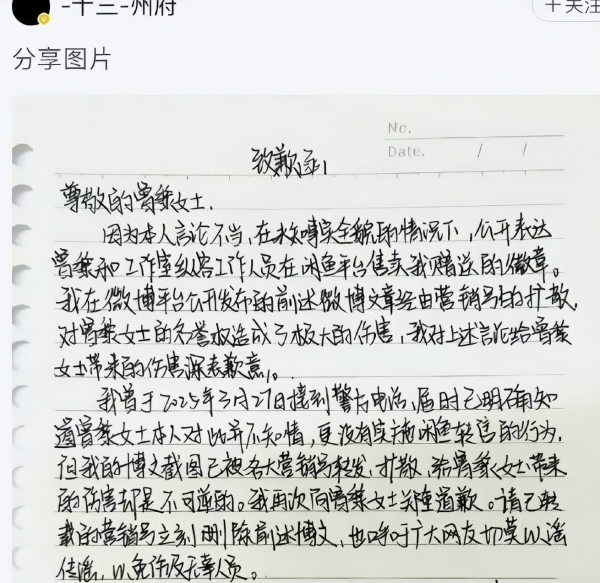 -十三-州府
+关注
分享图片
No.
Date. / /
致歉函
尊敬的曾黎女士,
因为本人言论不当,在未知事实全貌的情况下,公开表达
曾黎和工作室纵容工作人员在闲鱼平台售卖我赠送的徽章。
我在微博平台公开发布的前述微博文章经由营销号的扩散,
对曾黎女士的名誉权造成了极大的伤害,我对上述言论给曾黎
女士带来的伤害深表歉意。
我曾于2025年3月27日接到警方电话,届时已明确知
道曾黎女士本人对此并不知情,更没有实施闲鱼转卖的行为,
但我的博文截图已被各大营销号转发,扩散,给曾黎女士带来
的伤害却是不可逆的。我再次向曾黎女士郑重道歉。请已转
载的营销号立刻删除前述博文,也呼吁广大网友切莫以谣
传谣,以免伤及无辜人员。